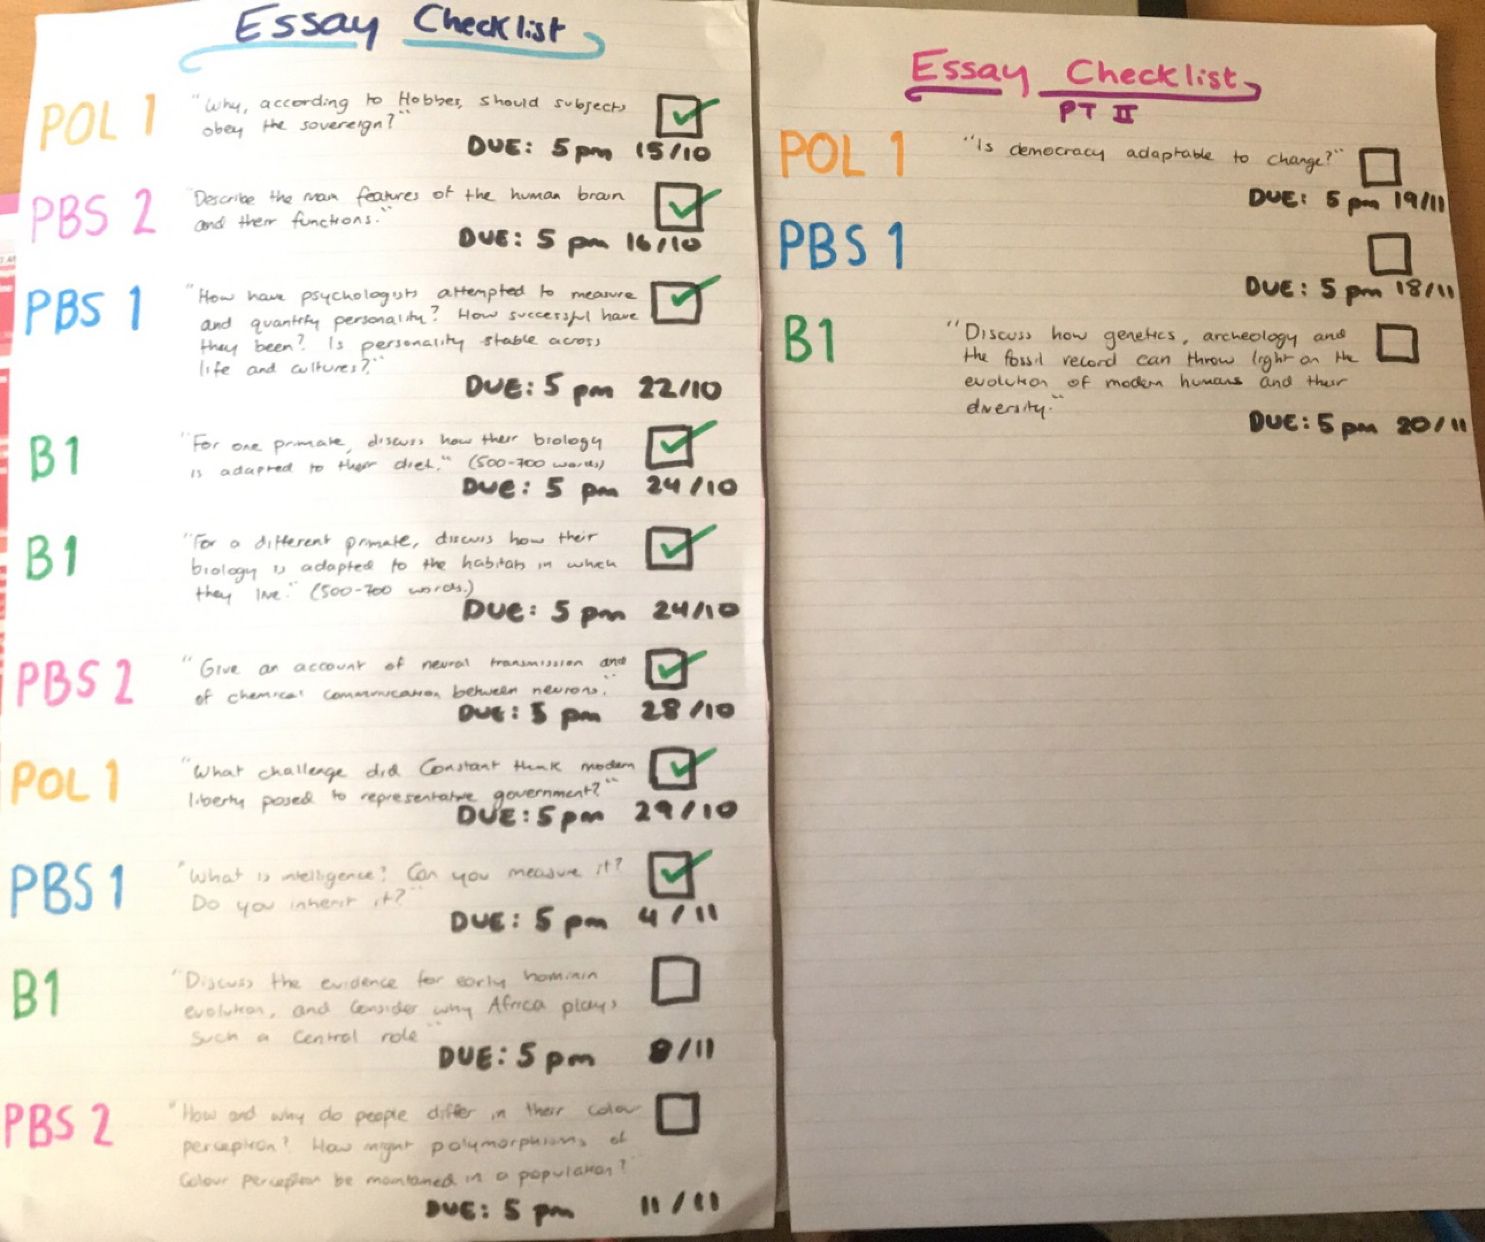 Essay Checklist
POL 1
"Why, according to Hobbes, should subjects
obey the sovereign?"
DUE: 5 pm 15/10
PBS 2
"Describe the main features of the human brain
and their functions."
DUE: 5 pm 16/10
PBS 1
"How have psychologists attempted to measure
and quantify personality? How successful have
they been? Is personality stable across
life and cultures?"
DUE: 5 pm 22/10
B1
"For one primate, discuss how their biology
is adapted to their diet." (500-700 words)
DUE: 5 pm 24/10
B1
"For a different primate, discuss how their
biology is adapted to the habitats in which
they live." (500-700 words.)
DUE: 5 pm 24/10
PBS 2
"Give an account of neural transmission and
of chemical communication between neurons."
DUE: 5 pm 28/10
POL 1
"What challenge did Constant think modern
liberty posed to representative government?"
DUE: 5 pm 29/10
PBS 1
"What is intelligence? Can you measure it?
Do you inherit it?"
DUE: 5 pm 4/11
B1
"Discuss the evidence for early hominin
evolution, and consider why Africa plays
such a central role"
DUE: 5 pm 8/11
PBS 2
"How and why do people differ in their colour
perception? How might polymorphisms of
colour perception be maintained in a population?"
DUE: 5 pm 11/11
Essay Checklist
PT II
POL 1
"Is democracy adaptable to change?"
DUE: 5 pm 19/11
PBS 1
DUE: 5 pm 18/11
B1
"Discuss how genetics, archeology and
the fossil record can throw light on the
evolution of modern humans and their
diversity."
DUE: 5 pm 20/11